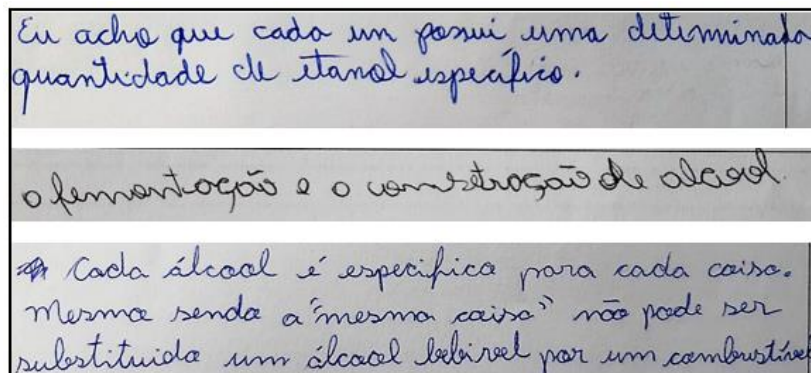 Eu acho que cada um possui uma determinada
quantidade de etanol específico.
a fermentação e a constração de alcool.
Cada álcool é especifica para cada coisa.
Mesmo sendo a "mesma coisa" não pode ser
substituida um álcool bebivel por um combustível